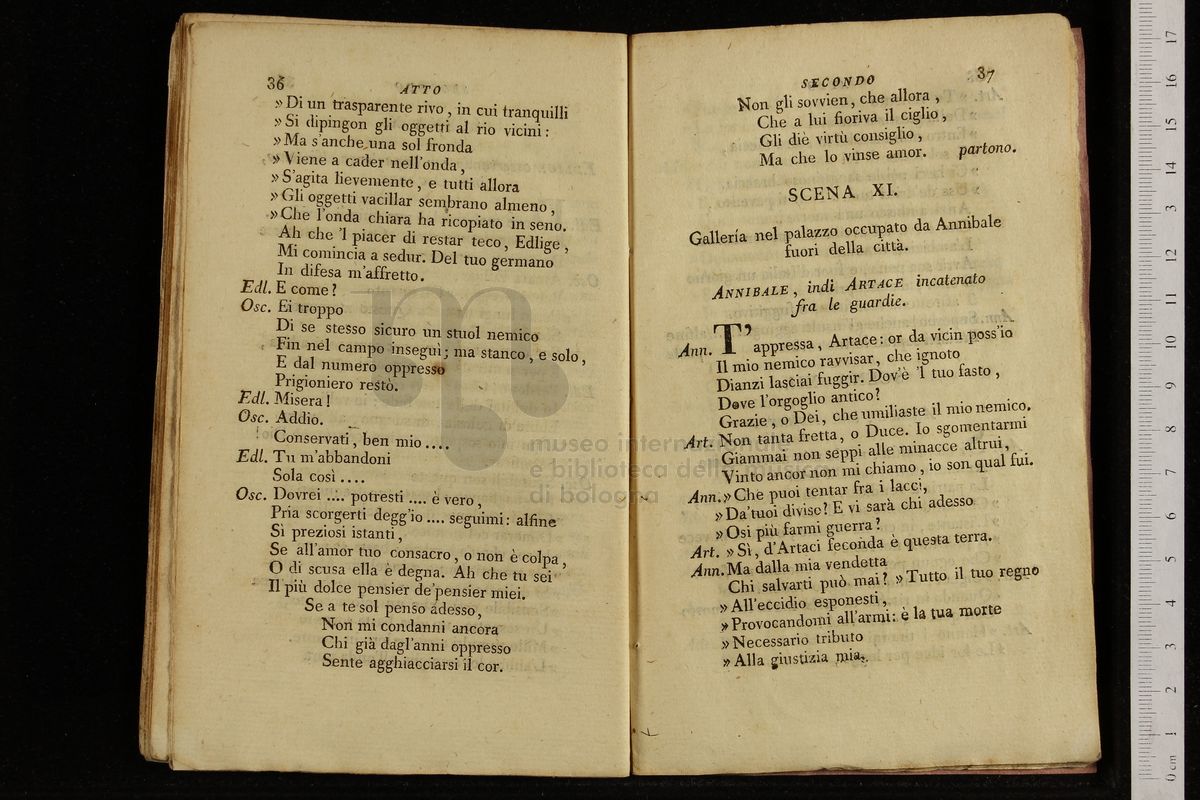 36
ATTO
» Di un trasparente rivo, in cui tranquilli
» Si dipingon gli oggetti al rio vicini:
» Ma s'anche una sol fronda
» Viene a cader nell'onda,
» S'agita lievemente, e tutti allora
» Gli oggetti vacillar sembrano almeno,
» Che l'onda chiara ha ricopiato in seno.
Ah che 'l piacer di restar teco, Edlige,
Mi comincia a sedur. Del tuo germano
In difesa m'affretto.
Edl. E come?
Osc. Ei troppo
Di se stesso sicuro un stuol nemico
Fin nel campo inseguì; ma stanco, e solo,
E dal numero oppresso
Prigioniero restò.
Edl. Misera!
Osc. Addio.
Conservati, ben mio ....
Edl. Tu m'abbandoni
Sola così ....
Osc. Dovrei .... potresti .... è vero,
Pria scorgerti degg'io .... seguimi: alfine
Sì preziosi istanti,
Se all'amor tuo consacro, o non è colpa,
O di scusa ella è degna. Ah che tu sei
Il più dolce pensier de'pensier miei.
Se a te sol penso adesso,
Non mi condanni ancora
Chi già dagl'anni oppresso
Sente agghiacciarsi il cor.
SECONDO
37
Non gli sovvien, che allora,
Che a lui fioriva il ciglio,
Gli diè virtù consiglio,
Ma che lo vinse amor. partono.
SCENA XI.
Gallería nel palazzo occupato da Annibale
fuori della città.
ANNIBALE, indi ARTACE incatenato
fra le guardie.
Ann. T'appressa, Artace: or da vicin poss'io
Il mio nemico ravvisar, che ignoto
Dianzi lasciai fuggir. Dov'è 'l tuo fasto,
Dove l'orgoglio antico?
Grazie, o Dei, che umiliaste il mio nemico.
Art. Non tanta fretta, o Duce. Io sgomentarmi
Giammai non seppi alle minacce altrui,
Vinto ancor non mi chiamo, io son qual fui.
Ann. » Che puoi tentar fra i lacci,
» Da'tuoi diviso? E vi sarà chi adesso
» Osi più farmi guerra?
Art. » Sì, d'Artaci feconda è questa terra.
Ann. Ma dalla mia vendetta
Chi salvarti può mai? » Tutto il tuo regno
» All'eccidio esponesti,
» Provocandomi all'armi: è la tua morte
» Necessario tributo
» Alla giustizia mia.
museo internazionale
e biblioteca della musica
di bologna
0 cm 1 2 3 4 5 6 7 8 9 10 11 12 13 14 15 16 17